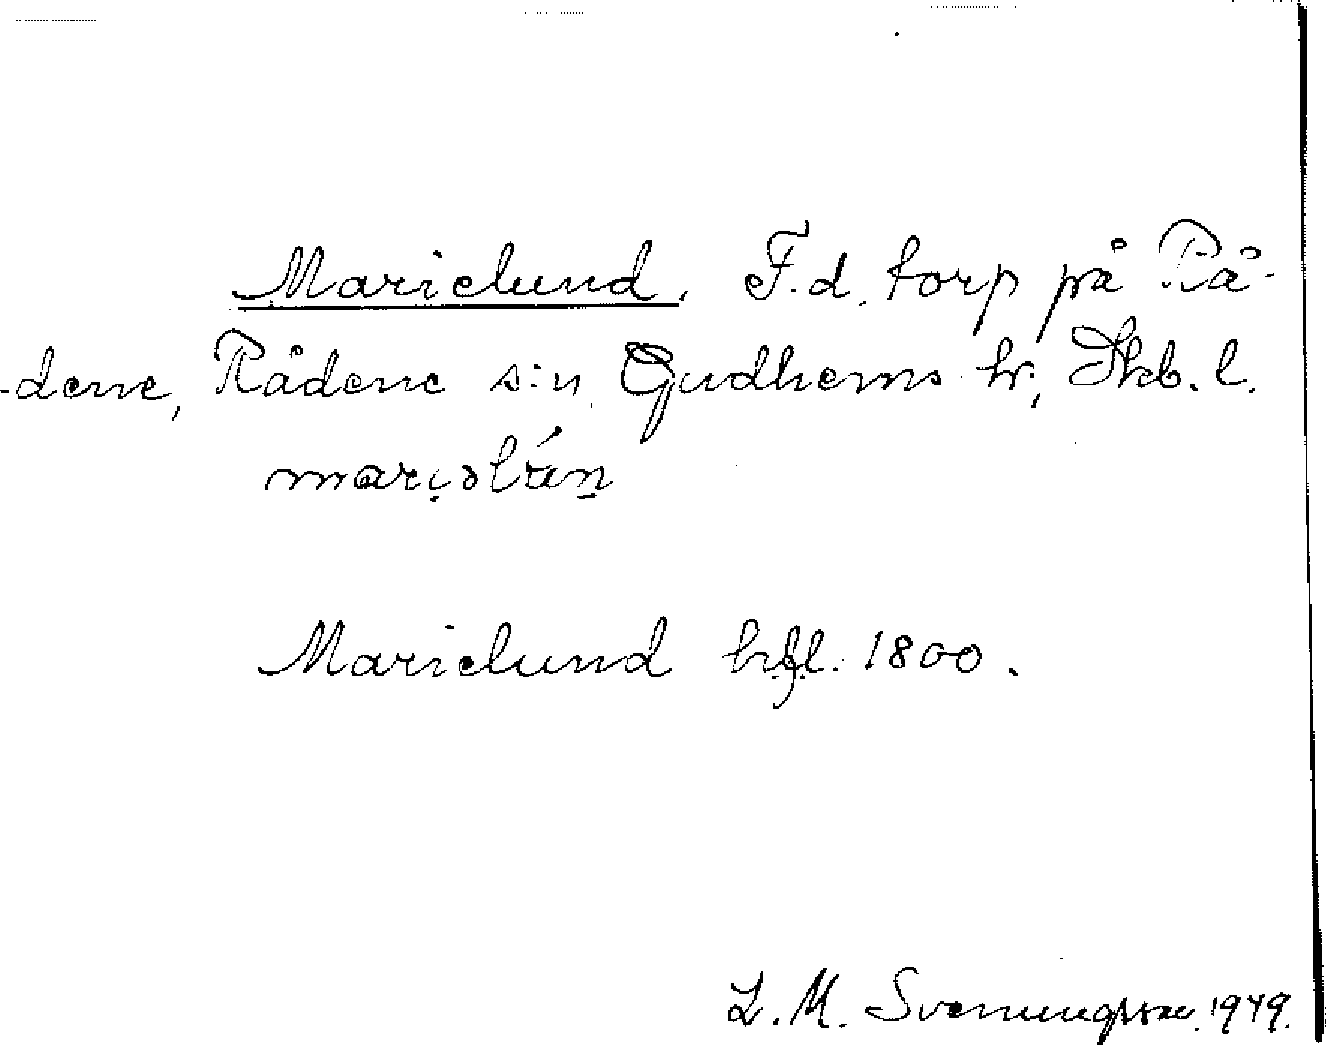 Marielund. F.d. torp på Rå-
dene, Rådene s:n, Gudhems hr, Skb. l.
Marielund hfl. 1800.
L. M. Svenungsson 1949.